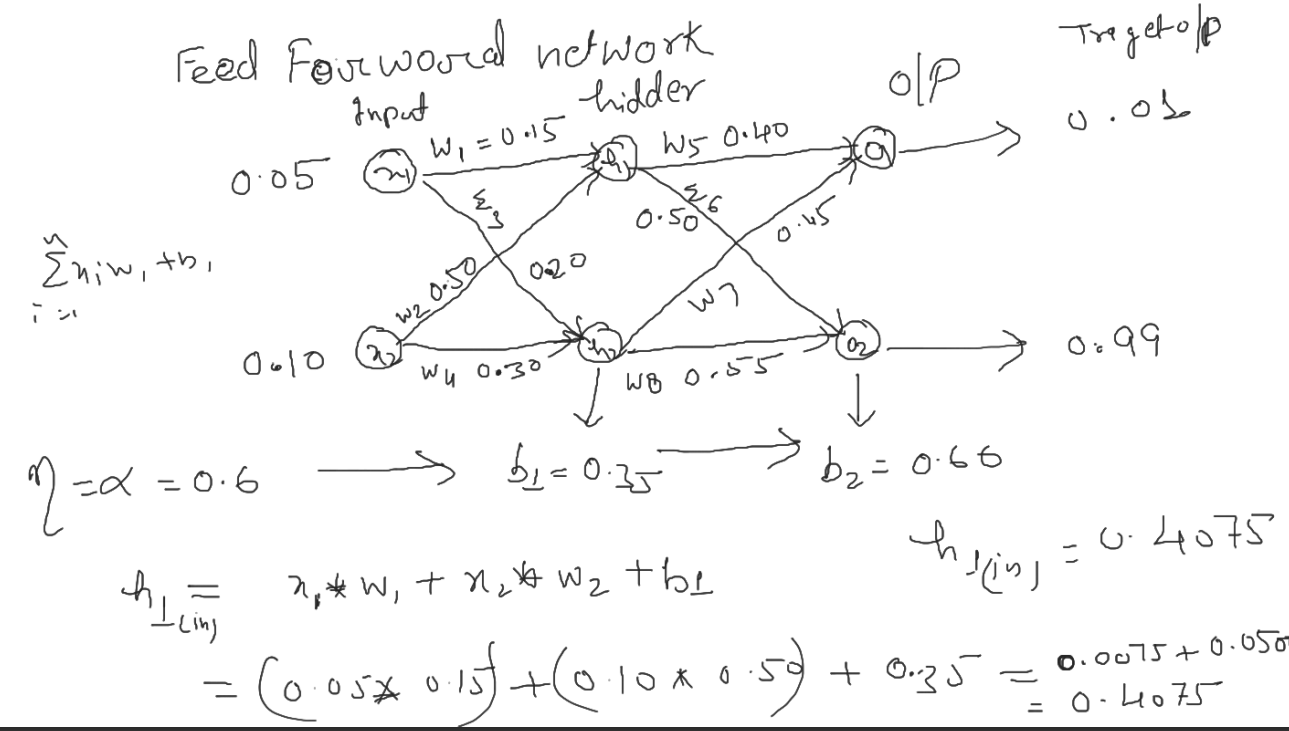 Feed Fourwoord network
Input
hidder
O/P
Traget o/p
0.05
x1
W1 = 0.15
h1
W5 0.40
O1
0.01
Σ3
Σ6
0.50
0.45
n
Σxiw1 + b1
i=1
W2 0.50
0.20
W7
0.10
x2
W4 0.30
h2
W8 0.55
O2
0.99
η = α = 0.6
b1 = 0.35
b2 = 0.66
h1(in) = 0.4075
h1(in) = x1 * w1 + x2 * w2 + b1
= (0.05 * 0.15) + (0.10 * 0.50) + 0.35 = 0.0075 + 0.050
= 0.4075